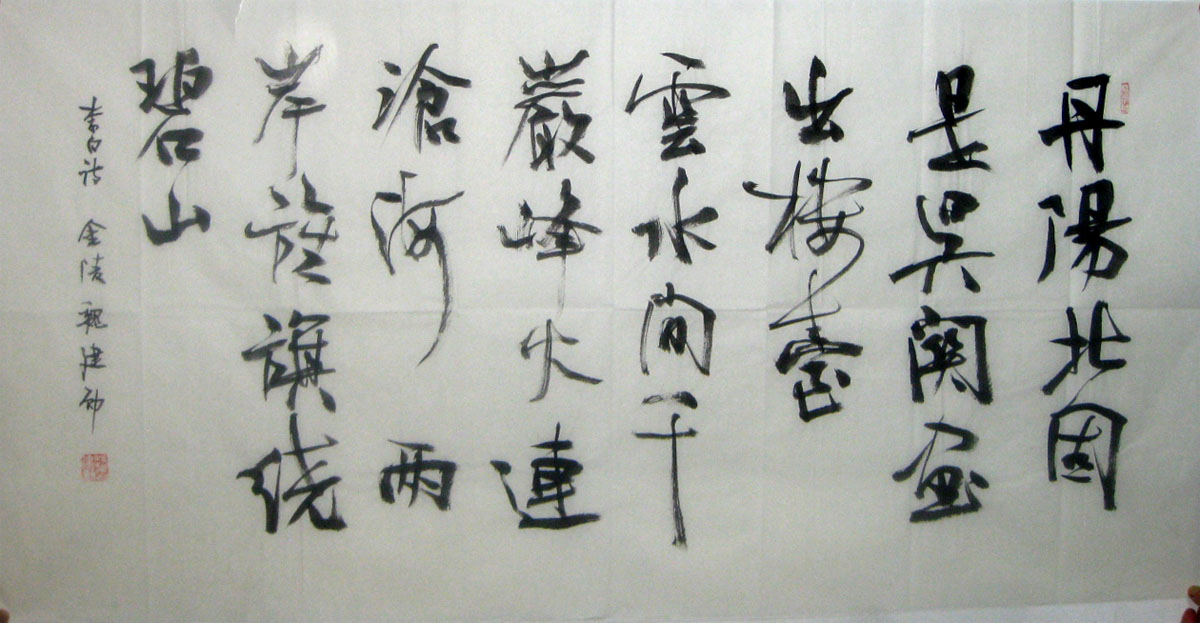 丹陽北固
是吳関畫
出楼臺
雲水間千
巖峰火連
滄海两
岸旌旗绕
碧山
李白诗 金陵魏建